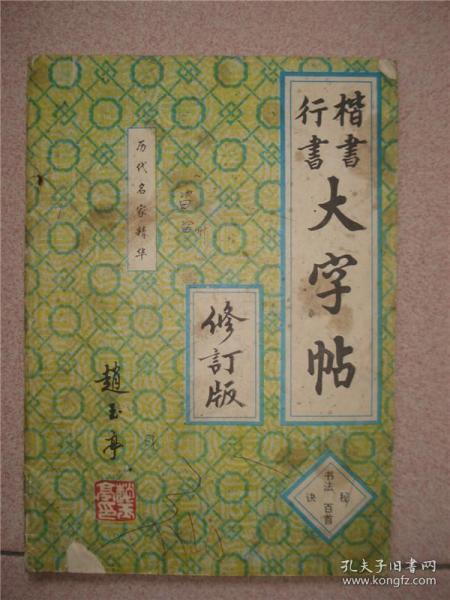 楷書
行書
大字帖
历代名家精华
修訂版
趙玉亭
书法
秘
诀
百首
孔夫子旧书网
www.kongfz.com